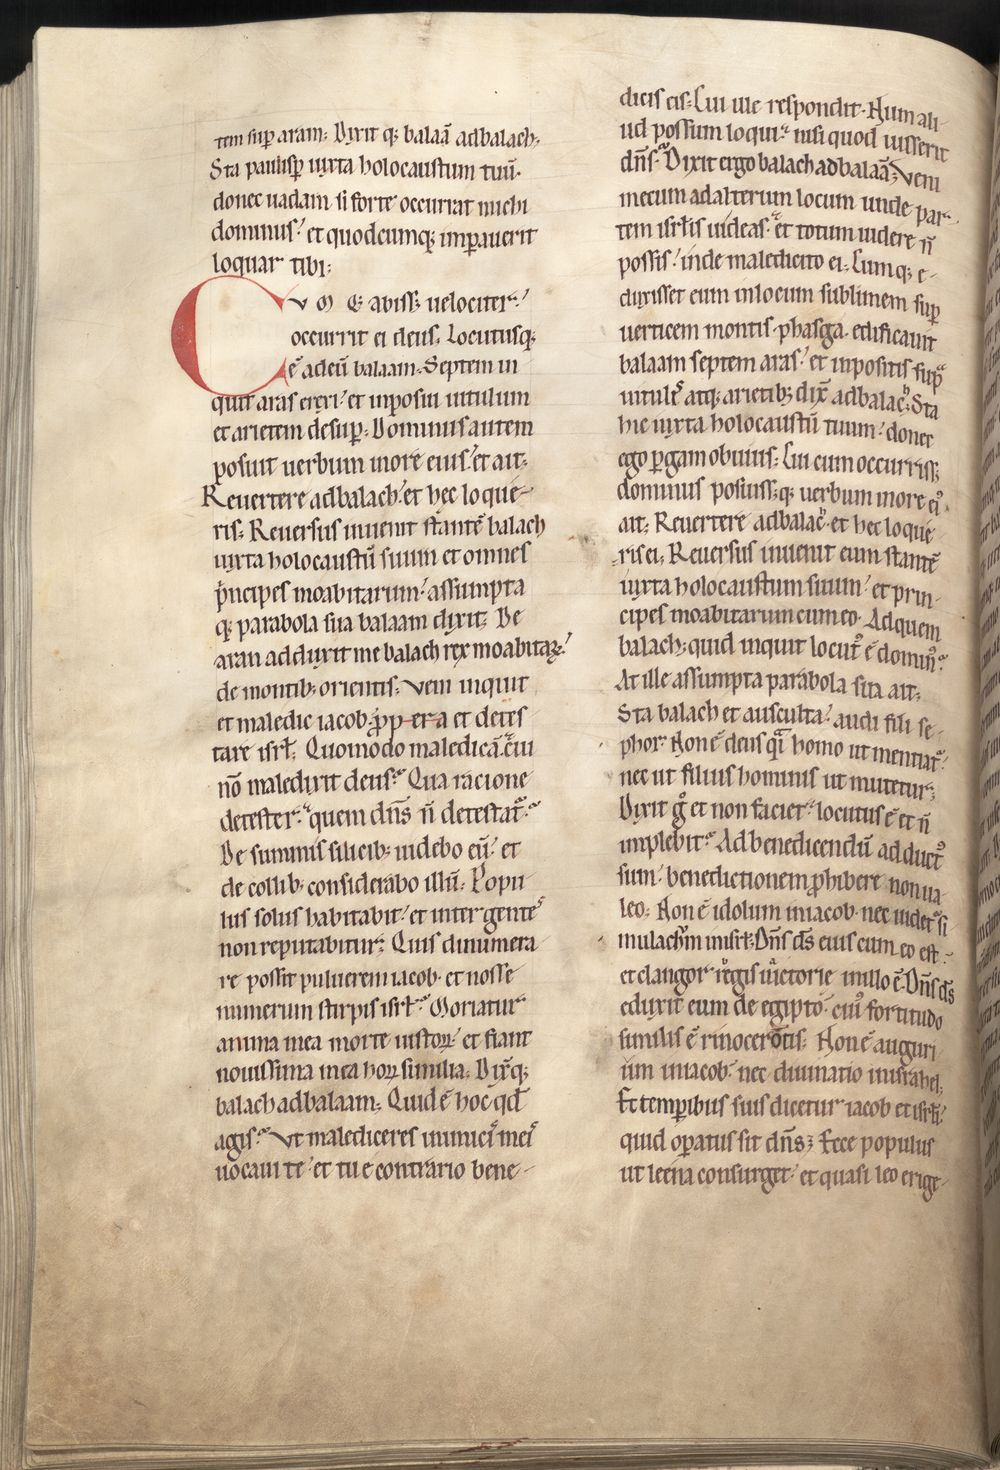 tem sup aram. Dixit q; balaā ad balach.
Sta paulisp iuxta holocaustum tuū.
donec uadam si forte occurrat michi
dominus. et quodcumq; imperauerit
loquar tibi.
Cum q; abiss; uelociter.
occurrit ei deus. Locutusq;
ē ad eū balaam. Septem in
quit aras erexi. et inposui uitulum
et arietem desup. Dominus autem
posuit uerbum in ore eius. et ait.
Reuertere ad balach. et hec loque-
ris. Reuersus inuenit stantē balach
iuxta holocaustū suum et omnes
pincipes moabitarum. assumpta
q; parabola sua balaam dixit. De
aran adduxit me balach rex moabitaꝝ.
de montib; orientis. Veni inquit
et maledic iacob. ppera et detes
tare isrł. Quomodo maledicā. cui
nō maledixit deus. Qua racione
detester. quem dn̄s n̄ detestat.
De summis silicib; uidebo eū. et
de collib; considerabo illū. Popu
lus solus habitabit. et inter gentes
non reputabitur. Quis dinumera
re possit puluerem iacob. et nosse
numerum stirpis isrł. Moriatur
anima mea morte iustoꝝ. et fiant
nouissima mea hoꝝ similia. Dixq;
balach ad balaam. Quid ē hoc qd
agis. Vt malediceres inimicis meis
uocaui te. et tu e contrario bene-
dicis eis. Cui ille respondit. Num ali-
ud possum loqui. nisi quod iusserit
dn̄s. Dixit ergo balach ad balaā. Veni
mecum ad alterum locum unde par-
tem isrłis uideas. et totum uidere n̄
possis. inde maledicito ei. Cumq; e-
duxisset eum in locum sublimem sup
uerticem montis phasga. edificauit
balaam septem aras. et inpositis supra
uitulis atq; arietib; dix̄ ad balac. Sta
hic iuxta holocaustū tuum. donec
ego pgam obuius. Cui cum occurriss;
dominus posuiss; q; uerbum in ore ei᾿.
ait. Reuertere ad balac. et hec loque
ris ei. Reuersus inuenit eum stantē
iuxta holocaustum suum. et prin-
cipes moabitarum cum eo. Ad quem
balach. quid inquit locut᾿ ē domin᾿.
At ille assumpta parabola sua ait.
Sta balach et ausculta. audi fili se-
phor. Non ē deus qi homo ut mentiat.
nec ut filius hominis ut mutetur.
Dixit g et non faciet. locutus ē et n̄
implebit. Ad benedicendū adduct᾿
sum. benedictionem phibere non ua
leo. Non ē idolum in iacob. nec uidet si
mulachrm in isrł. Dn̄s ds̄ eius cum eo est.
et clangor regis uictorie in illo ē. Dn̄s ds̄
eduxit eum de egipto. cui᾿ fortitudo
similis ē rinocerotis. Non ē auguri
um in iacob. nec diuinatio in israhel.
Et temporibus suis dicetur iacob et isrłi.
quid opatus sit dn̄s. Ecce populus
ut leena consurget. et quasi leo erige-